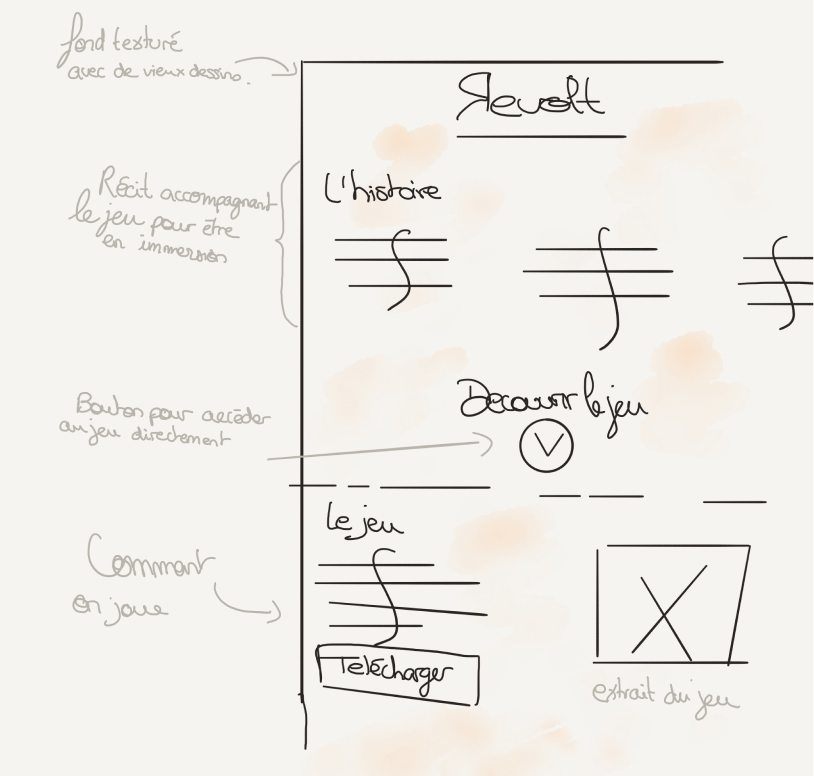 fond texturé
avec de vieux dessins.
Revolt
Récit accompagnant
le jeu pour être
en immersion
L'histoire
Bouton pour accéder
au jeu directement
Découvrir le jeu
Le jeu
Comment
on joue
Télécharger
extrait du jeu